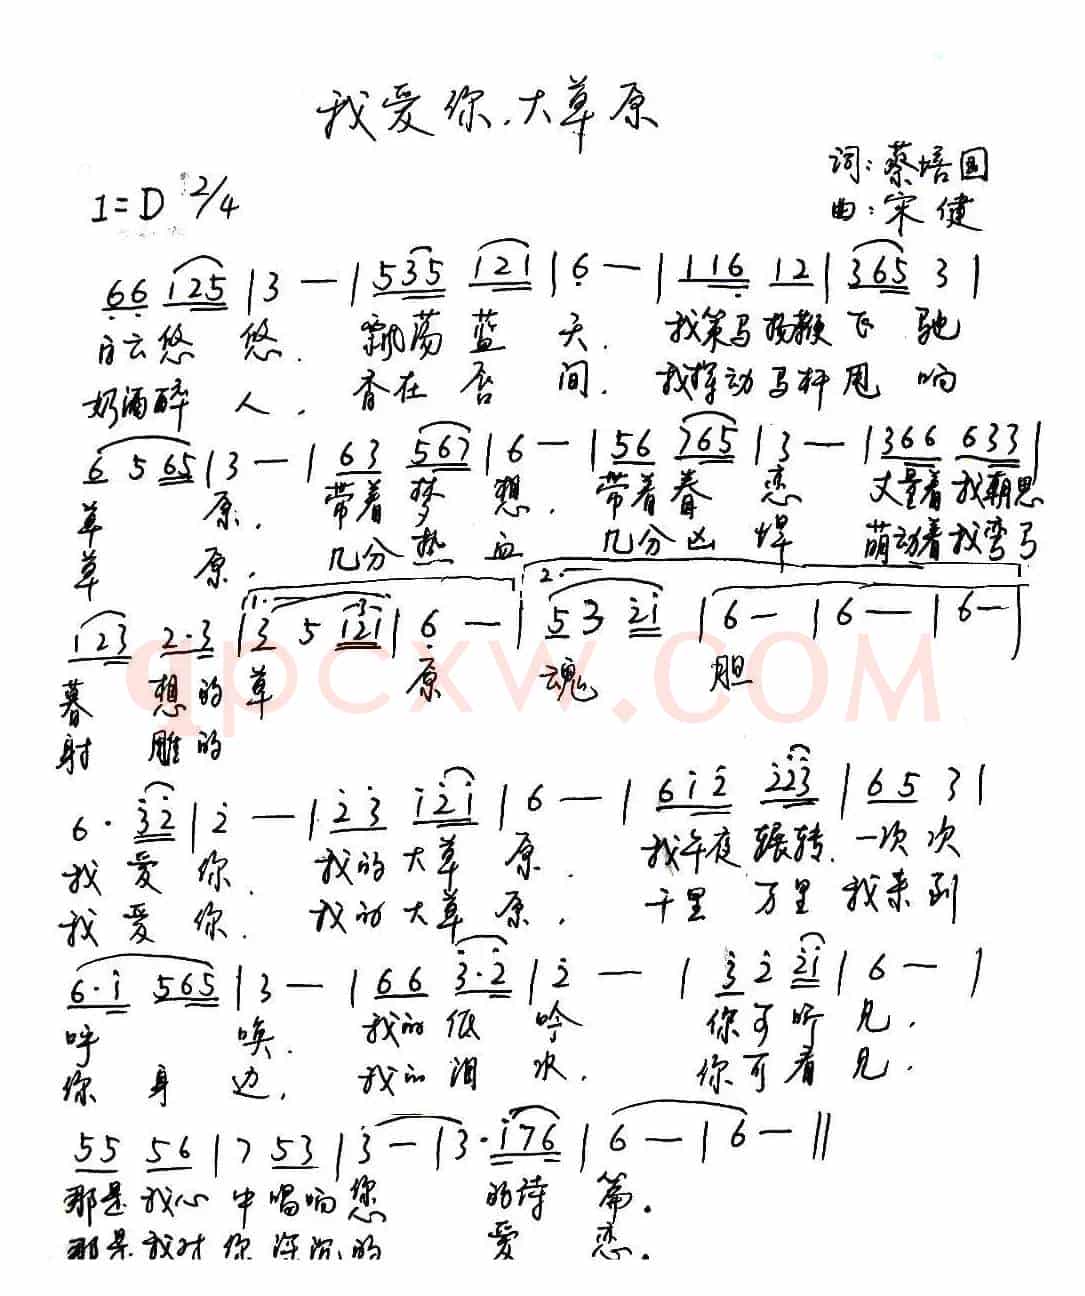 我爱你.大草原
词:蔡培国
1=D 2/4
曲:宋健
66 125 | 3 — | 535 121 | 6 — | 116 12 | 365 3 |
白云悠 悠. 飘荡蓝 天. 我策马扬鞭飞 驰
奶酒醉 人. 香在唇 间. 我挥动马杆甩 响
6 5 65 | 3 — | 63 567 | 6 — | 56 765 | 3 — | 366 633 |
草 原. 带着梦 想. 带着眷 恋 丈量着我朝思
草 原. 几分热 血 几分凶 悍 萌动着我弯弓
123 2·3 | 1. 3 5 121 | 6 — | 2. 5 3 21 | 6 — | 6 — | 6 — |
暮 想的草 原 魂 胆
射 雕的
6· 32 | 2 — | 23 121 | 6 — | 612 223 | 65 3 |
我 爱 你. 我的大草 原. 我午夜辗转.一次次
我 爱 你. 我的大草 原. 千里 万里 我来到
6·1 565 | 3 — | 66 3·2 | 2 — | 3 2 21 | 6 — |
呼 唤. 我的低 吟 你可听 见.
你 身 边. 我的泪 水. 你可看 见.
55 56 | 7 53 | 3 — | 3· 176 | 6 — | 6 — ‖
那是我心中唱响您 的诗 篇.
那是我对你深沉的 爱 恋.
qpcxw.COM